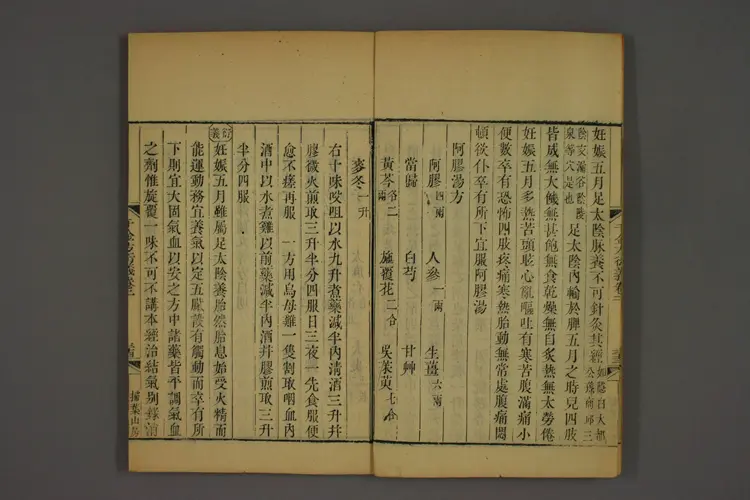 妊娠五月足太陰脉養不可針灸其經如隱白大都
公孫商邱三
陰交漏谷陰陵
泉等穴是也足太陰內輸於脾五月之時兒四肢
皆成無大饑無甚飽無食乾燥無自炙熱無太勞倦
妊娠五月多熱苦頭眩心亂嘔吐有寒苦腹滿痛小
便數卒有恐怖四肢疼痛寒熱胎動無常處腹痛悶
頓欲仆卒有所下宜服阿膠湯
阿膠湯方
阿膠四兩 人參一兩 生薑六兩
當歸 白芍 甘艸
黃芩各二兩 旋覆花二合 吳茱萸七合
麥冬一升
右十味㕮咀以水九升煮藥減半內清酒三升并
膠微火煎取三升半分四服日三夜一先食服便
愈不瘥再服 一方用烏母雞一隻割取咽血內
酒中以水煮雞以煎藥減半內酒并膠煎取三升
半分四服
衍義妊娠五月雖屬足太陰養胎然胎息始受火精而
能運動務宜養氣以定五臟設有觸動而卒有所
下則宜大固氣血以安之方中諸藥皆平調氣血
之劑惟旋覆一味不可不講本經治結氣別錄消
千金方衍義卷二
掃葉山房